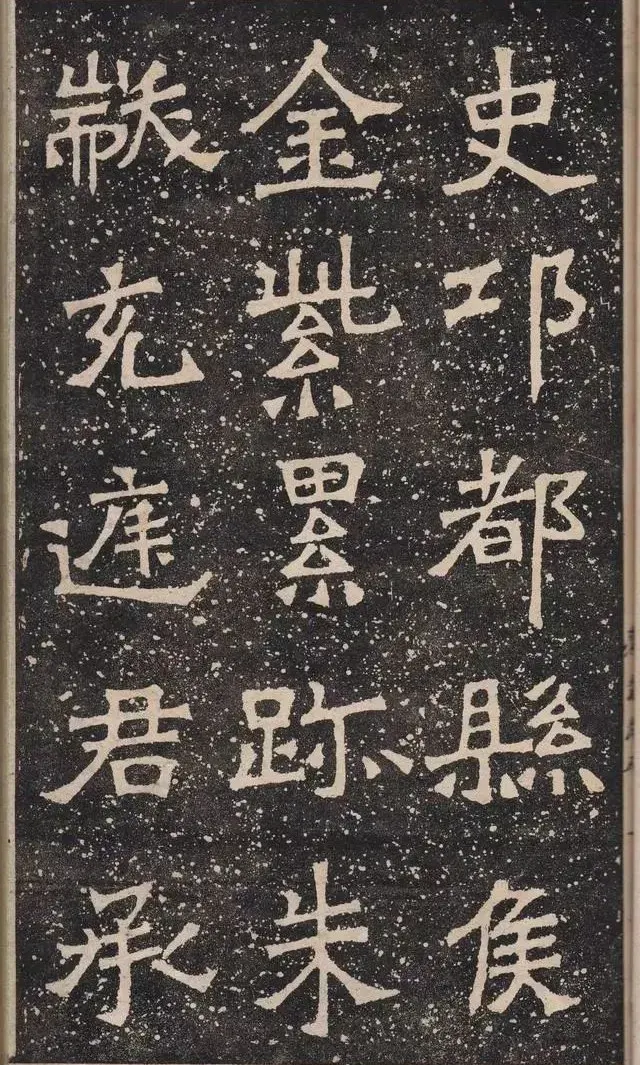 史邛都縣侯
金紫累跡朱
黻充庭君承